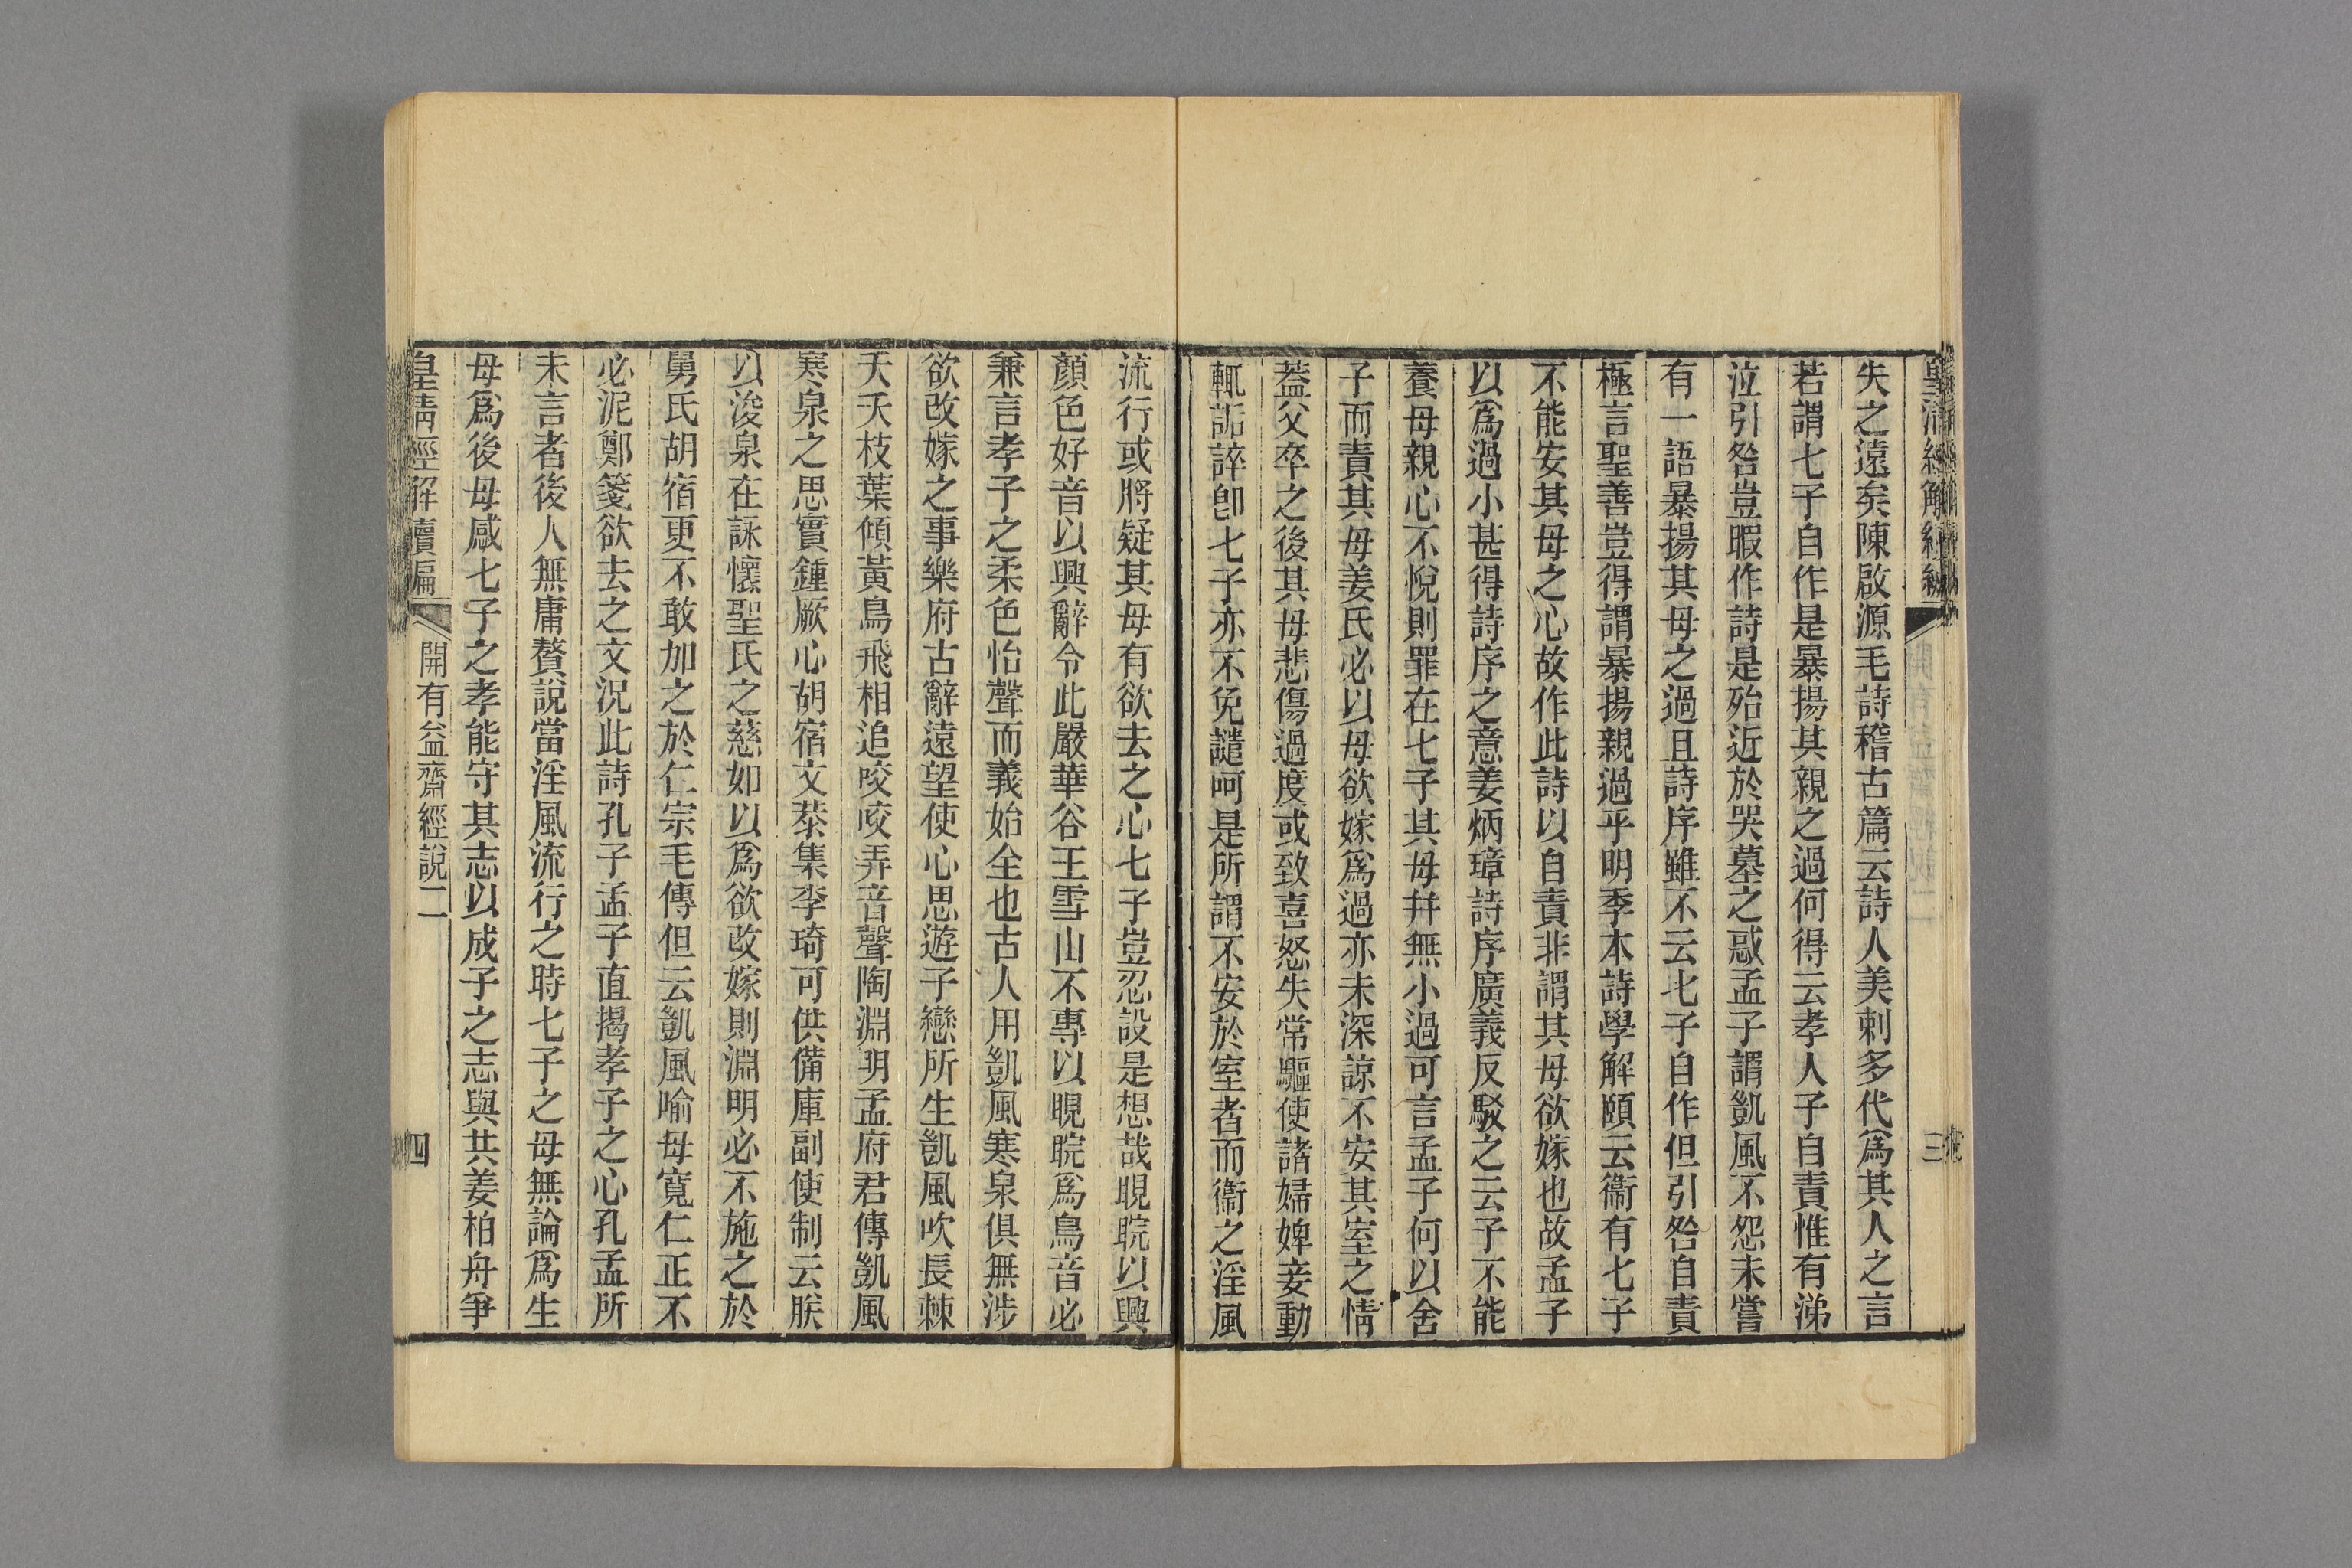 失之遠矣陳啟源毛詩稽古篇云詩人美刺多代爲其人之言
若謂七子自作是暴揚其親之過何得云孝人子自責惟有涕
泣引咎豈暇作詩是殆近於哭墓之惑孟子謂凱風不怨未嘗
有一語暴揚其母之過且詩序雖不云七子自作但引咎自責
極言聖善豈得謂暴揚親過乎明季本詩學解頤云衞有七子
不能安其母之心故作此詩以自責非謂其母欲嫁也故孟子
以爲過小甚得詩序之意姜炳璋詩序廣義反駁之云子不能
養母親心不悅則罪在七子其母幷無小過可言孟子何以舍
子而責其母姜氏必以母欲嫁爲過亦未深諒不安其室之情
蓋父卒之後其母悲傷過度或致喜怒失常驅使諸婦婢妾動
輒詬誶卽七子亦不免譴呵是所謂不安於室者而衞之淫風
流行或將疑其母有欲去之心七子豈忍設是想哉睍睆以興
顏色好音以興辭令此嚴華谷王雪山不專以睍睆爲鳥音必
兼言孝子之柔色怡聲而義始全也古人用凱風寒泉俱無涉
欲改嫁之事樂府古辭遠望使心思遊子戀所生凱風吹長棘
夭夭枝葉傾黃鳥飛相追咬咬弄音聲陶淵明孟府君傳凱風
寒泉之思實鍾厥心胡宿文恭集李琦可供備庫副使制云朕
以浚泉在詠懷聖氏之慈如以爲欲改嫁則淵明必不施之於
舅氏胡宿更不敢加之於仁宗毛傳但云凱風喻母寬仁正不
必泥鄭箋欲去之文況此詩孔子孟子直揭孝子之心孔孟所
未言者後人無庸贅說當淫風流行之時七子之母無論爲生
母爲後母感七子之孝能守其志以成子之志與共姜柏舟爭
皇清經解續編
開有益齋經說二
四